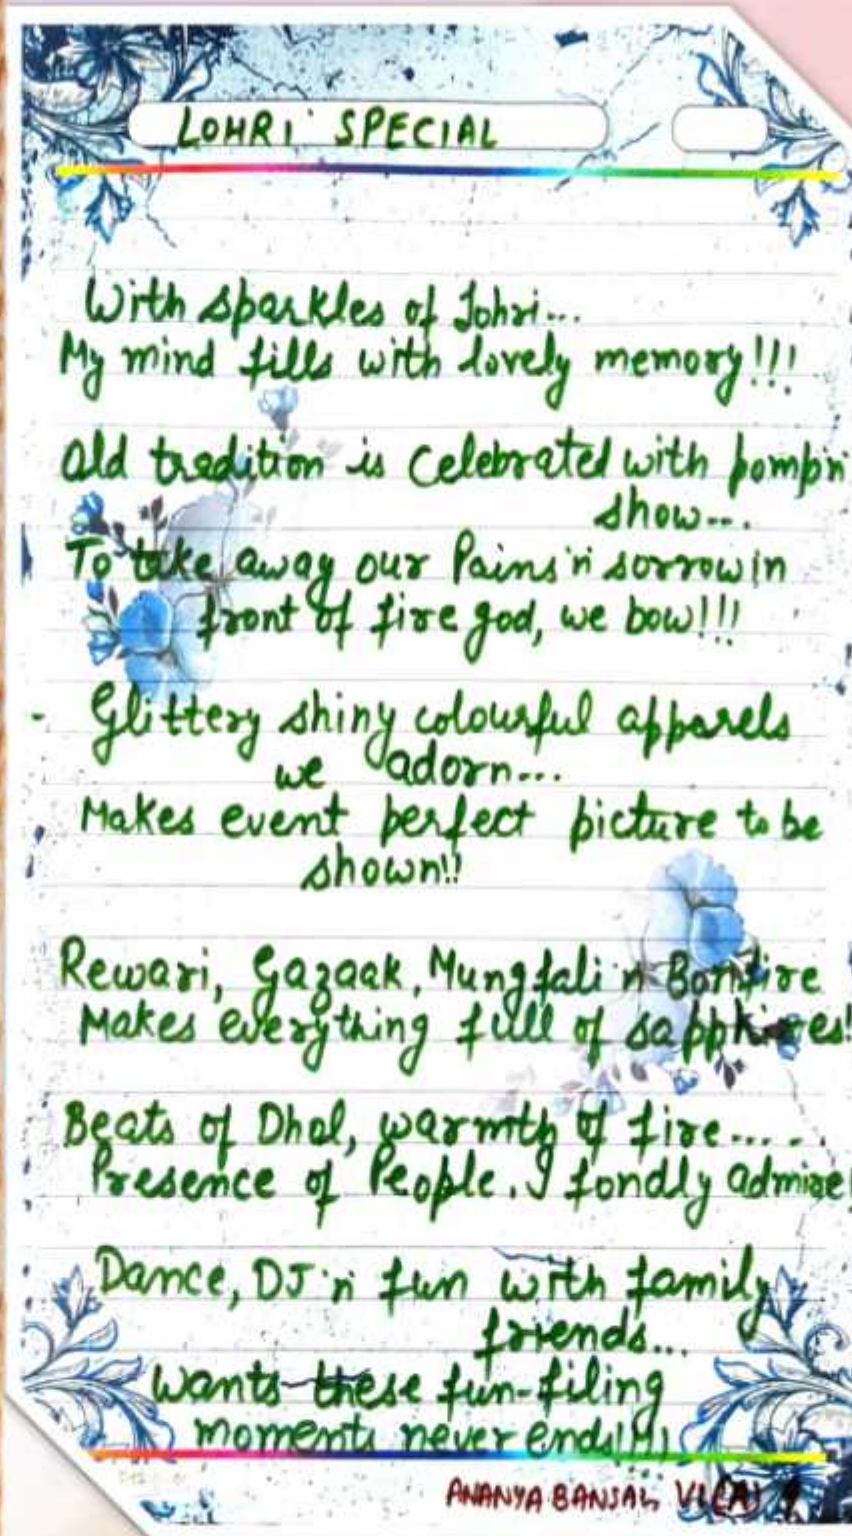 LOHRI SPECIAL
With sparkles of Lohri...
My mind fills with lovely memory!!!
Old tradition is celebrated with pomp'n'
show...
To take away our Pains 'n' sorrow in
front of fire god, we bow!!!
Glittery shiny colourful apparels
we adorn...
Makes event perfect picture to be
shown!!
Rewari, Gazaak, Mungfali 'n' Bonfire
Makes everything full of sapphires!
Beats of Dhol, warmth of fire.....
Presence of People, I fondly admire!
Dance, DJ 'n' fun with family
friends...
Wants these fun-filing
moments never ends!!!!
ANANYA BANSAL VI(A)